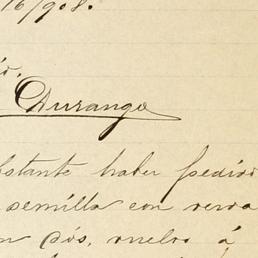 16/908.
Durango
bstante haber pedido
semilla con
vuelvo á